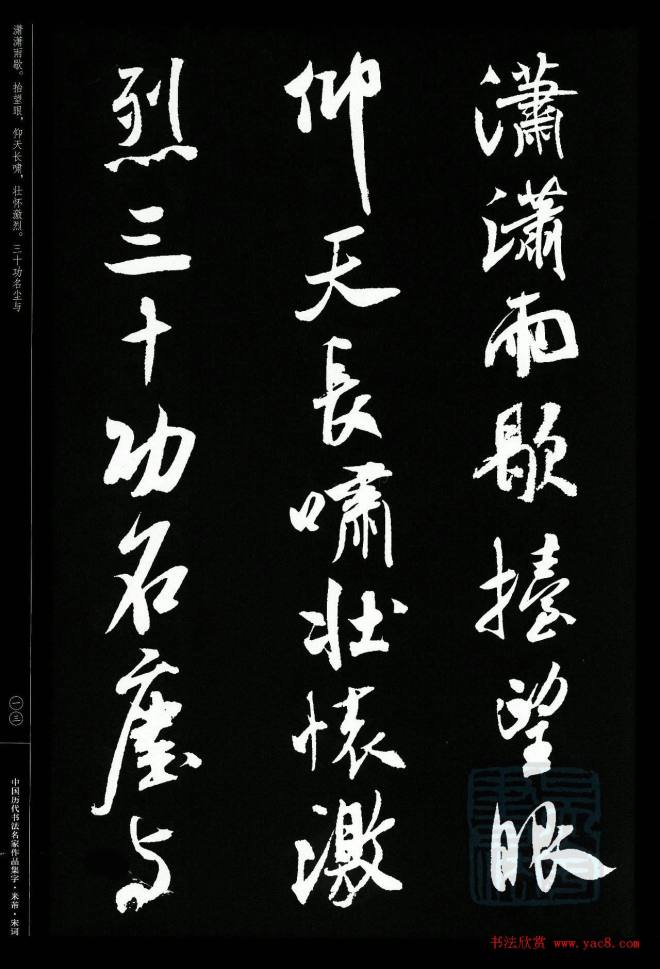 瀟瀟雨歇擡望眼
仰天長嘯壯懷激
烈三十功名塵与
潇潇雨歇。抬望眼，仰天长啸，壮怀激烈。三十功名尘与
一三
中国历代书法名家作品集字·米芾·宋词
书法欣赏 www.yac8.com